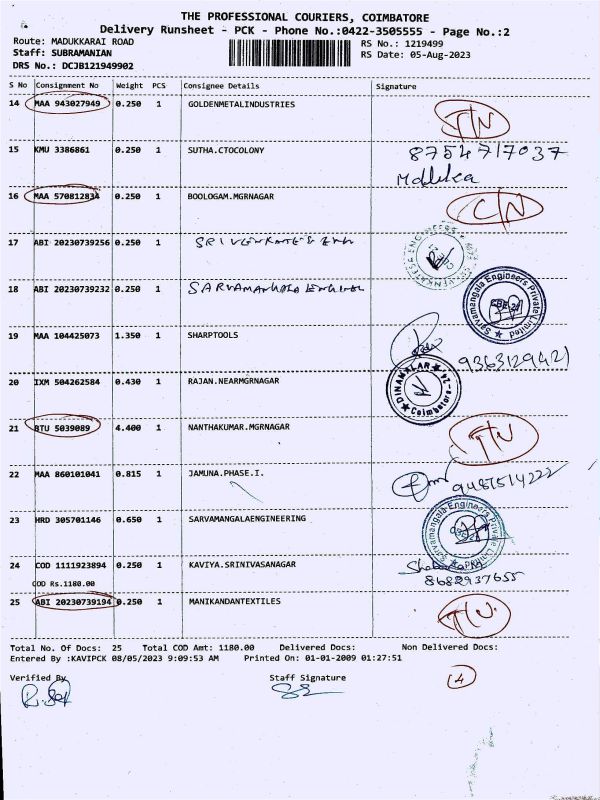 THE PROFESSIONAL COURIERS, COIMBATORE
Delivery Runsheet - PCK - Phone No.:0422-3505555 - Page No.:2
Route: MADUKKARAI ROAD
RS No.: 1219499
Staff: SUBRAMANIAN
RS Date: 05-Aug-2023
DRS No.: DCJB121949902
S No Consignment No Weight PCS Consignee Details Signature
14 MAA 943027949 0.250 1 GOLDENMETALINDUSTRIES
15 KMU 3386861 0.250 1 SUTHA.CTOCOLONY 8754717037
16 MAA 570812834 0.250 1 BOOLOGAM.MGRNAGAR
17 ABI 20230739256 0.250 1
18 ABI 20230739232 0.250 1 Sarvamangala Engineers Private Limited
19 MAA 104425073 1.350 1 SHARPTOOLS 9363129421
20 IXM 504262584 0.430 1 RAJAN.NEARMGRNAGAR DINAMALAR Coimbatore-24
21 BTU 5039089 4.400 1 NANTHAKUMAR.MGRNAGAR
22 MAA 860101041 0.815 1 JAMUNA.PHASE.I.
23 HRD 305701146 0.650 1 SARVAMANGALAENGINEERING Sarvamangala Engineers Private Limited
24 COD 1111923894 0.250 1 KAVIYA.SRINIVASANAGAR
COD Rs.1180.00 8682937655
25 ABI 20230739194 0.250 1 MANIKANDANTEXTILES
Total No. Of Docs: 25 Total COD Amt: 1180.00 Delivered Docs: Non Delivered Docs:
Entered By :KAVIPCK 08/05/2023 9:09:53 AM Printed On: 01-01-2009 01:27:51
Verified By Staff Signature